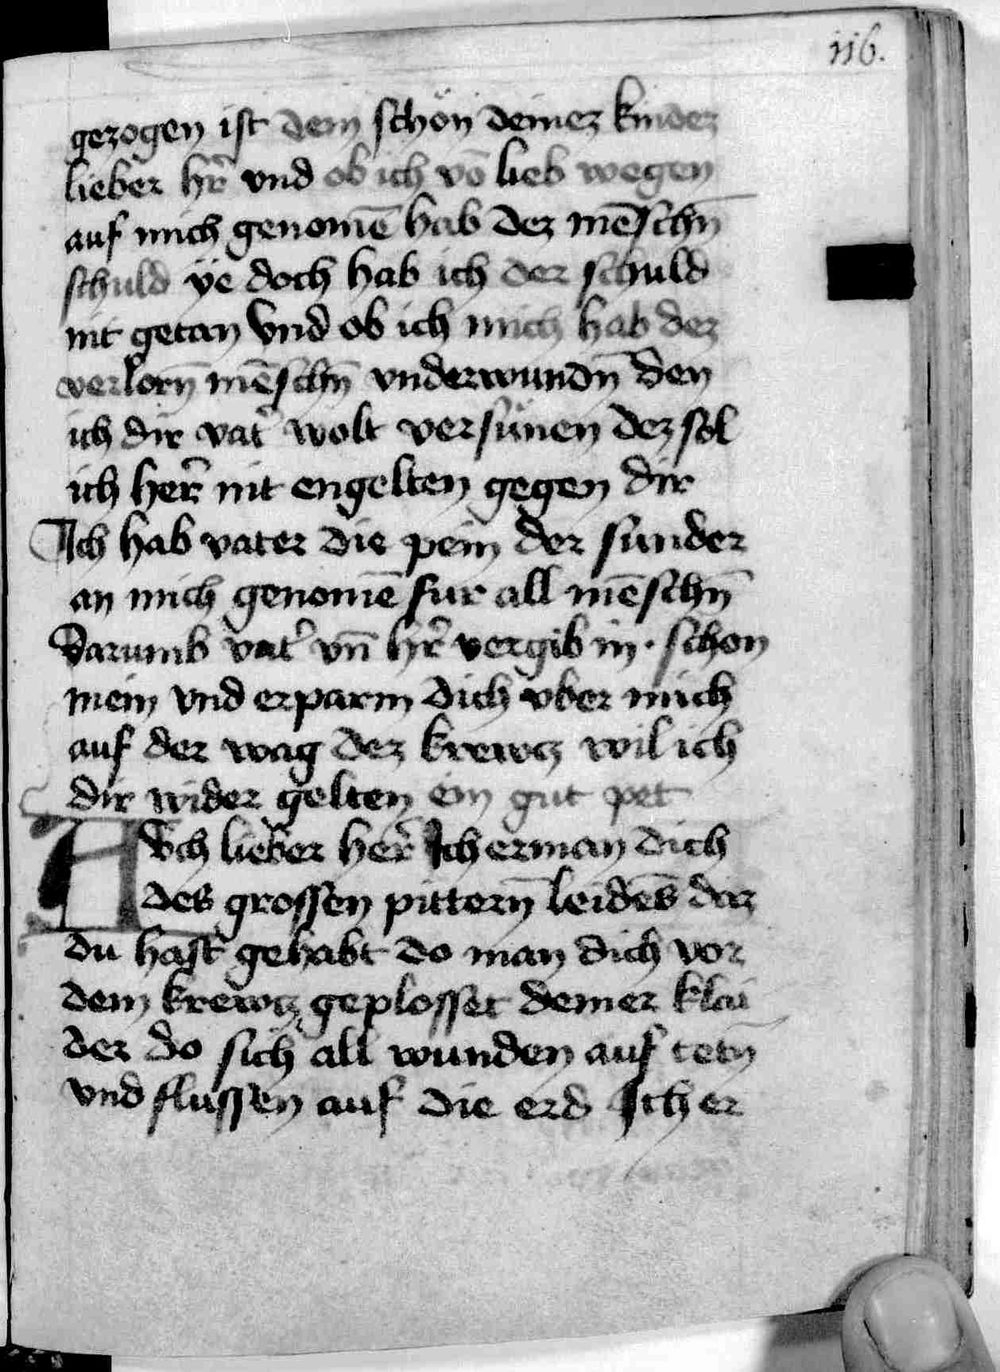 116.
gezogen ist dem schön deinez kindez
lieber hr̄ vnd ob ich vō lieb wegen
auf mich genomē hab dez mēschn̄
schuld ÿe doch hab ich der schuld
nit getan Vnd ob ich mich hab dez
verlorn̄ mēschn̄ vnderwundn̄ den
ich dir vat̄ wolt versünen dez sol
ich her̄ nit engelten gegen dir
Ich hab vater die pein der sunder
an mich genomē fur all mēschn̄
Darumb vat̄ vn̄ hr̄ vergib in · schon
mein vnd erparm dich vber mich
auf der wag dez krewcz wil ich
dir wider gelten ein gut pet
Ach lieber her̄ Ich erman dich
des grossen pittern̄ leidēs daz
du hast gehabt do man dich vor
dem krewcz geplosset deiner klai
der do sich all wunden auf tetn̄
vnd flussen auf die erd Ich er